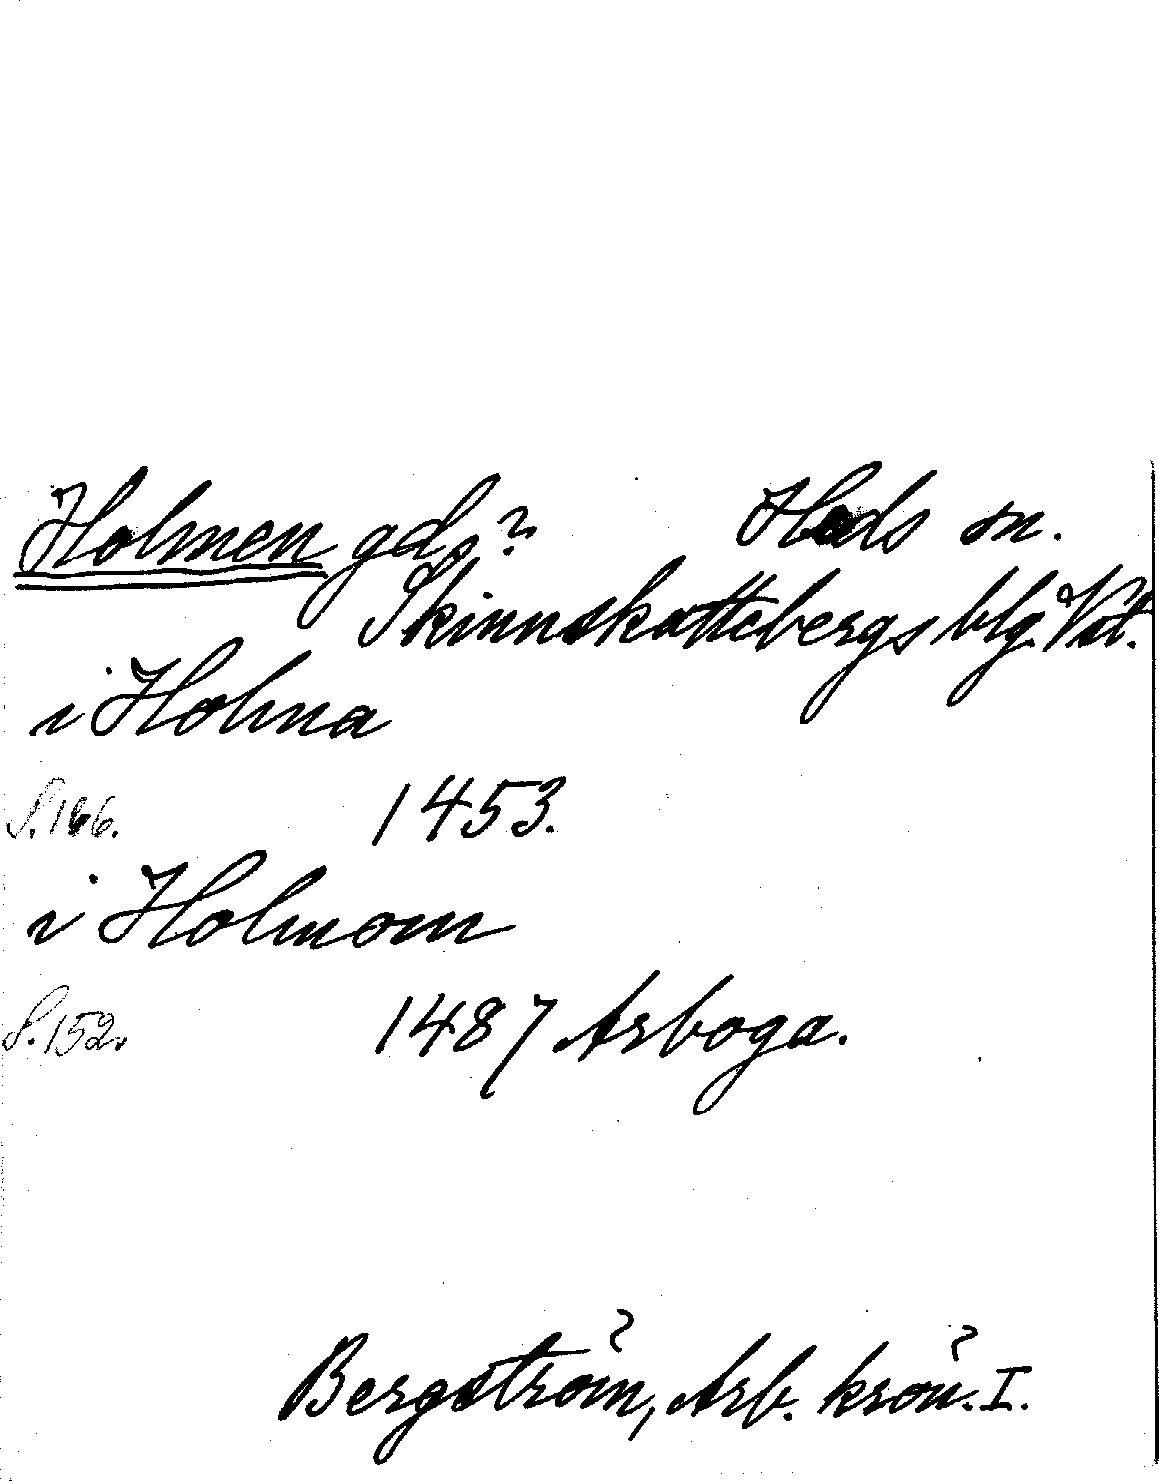 Holmen gd.? Heds sn.
Skinnskattebergs blg. Vstm.
i Holma
S. 166. 1453.
i Holmom
S. 152. 1487 Arboga.
Bergström, Arb. krön. I.